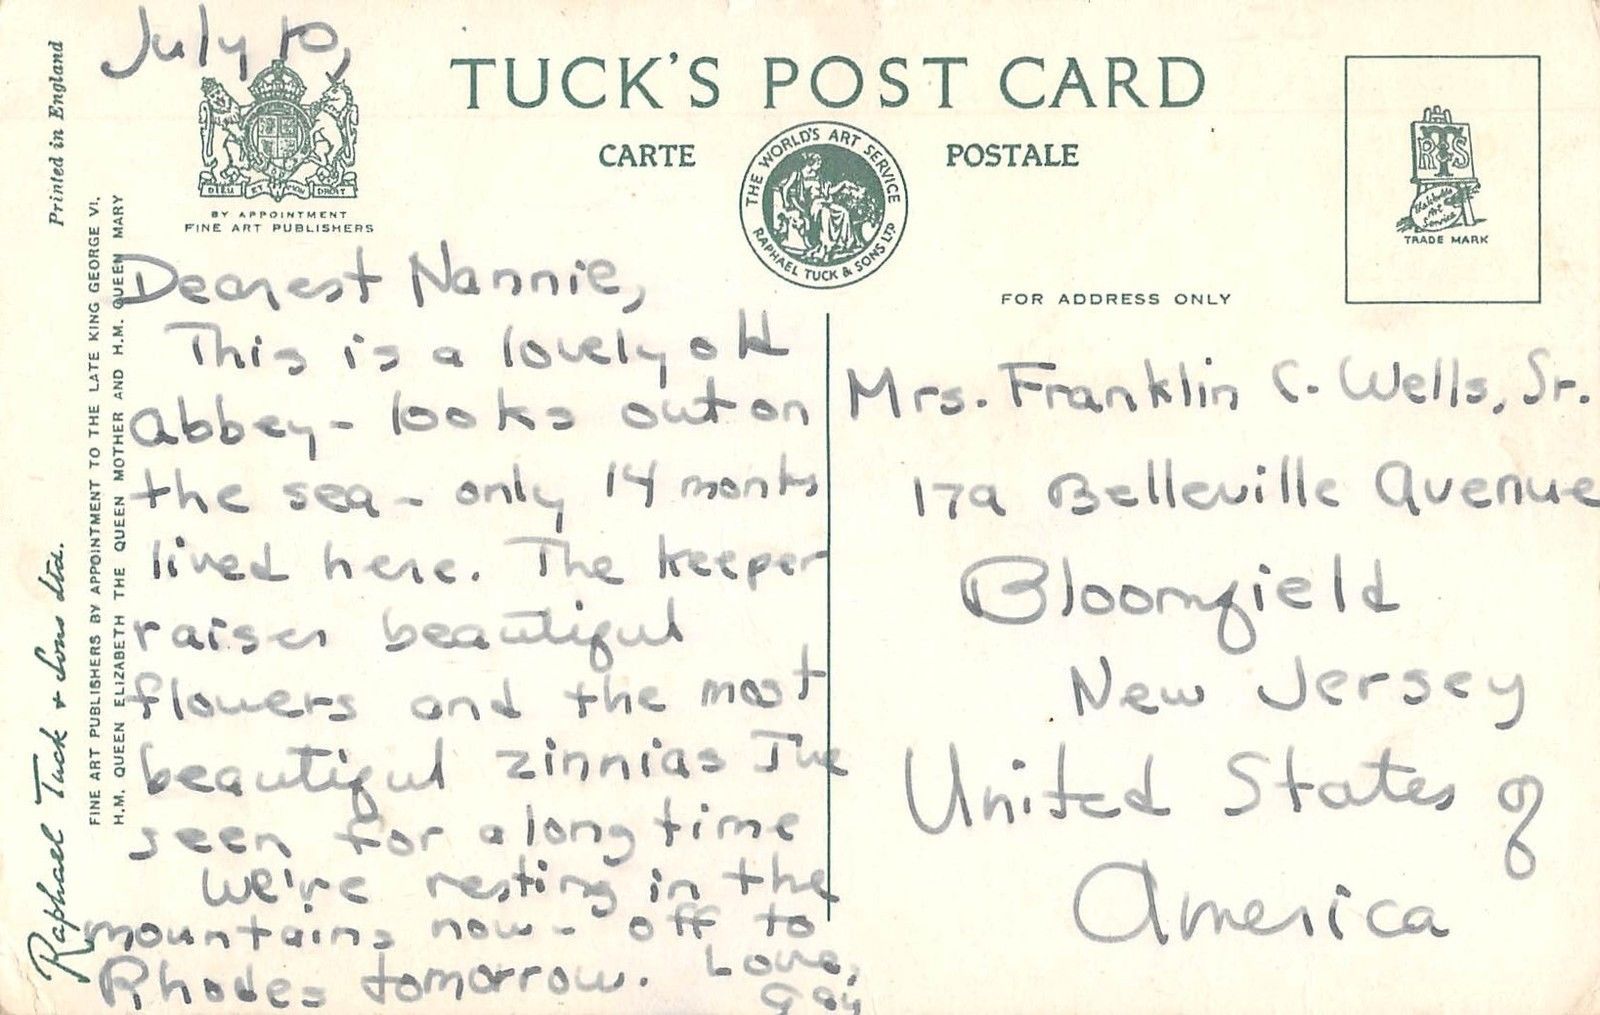 July 10,
TUCK'S POST CARD
CARTE POSTALE
THE WORLD'S ART SERVICE
RAPHAEL TUCK & SONS LTD
DIEU ET MON DROIT
BY APPOINTMENT
FINE ART PUBLISHERS
R T S
TRADE MARK
FOR ADDRESS ONLY
Printed in England
FINE ART PUBLISHERS BY APPOINTMENT TO THE LATE KING GEORGE VI,
H.M. QUEEN ELIZABETH THE QUEEN MOTHER AND H.M. QUEEN MARY
Raphael Tuck & Sons Ltd.
Dearest Nannie,
This is a lovely old
abbey - looks out on
the sea - only 14 monks
lived here. The keeper
raises beautiful
flowers and the most
beautiful zinnias I've
seen for a long time
We're resting in the
mountains now - off to
Rhodes tomorrow. Love,
Gay
Mrs. Franklin C. Wells, Sr.
179 Belleville Avenue
Bloomfield
New Jersey
United States of
America